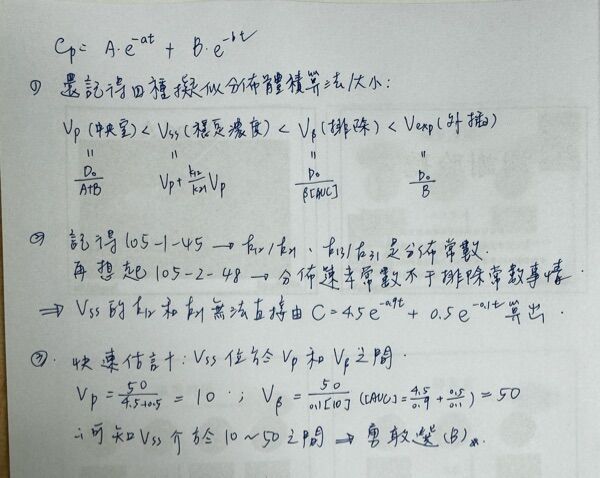 Cp = A·e^-at + B·e^-bt
① 還記得四種擬似分佈體積算法/大小:
Vp(中央室) < Vss(穩定濃度) < Vβ(排除) < Vexp(外插)
= D₀/(A+B)  = Vp + (k12/k21)Vp  = D₀/(β[AUC])  = D₀/B
② 記得105-1-45 → k12/k21、k13/k31是分佈常數.
再想起105-2-48 → 分佈速率常數不干排除常數事情
⇒ Vss的k12和k21無法直接由 C = 4.5e^-0.9t + 0.5e^-0.1t 算出.
③. 快速估計: Vss位於Vp和Vβ之間.
Vp = 50/(4.5+0.5) = 10 ; Vβ = 50/(0.1[10]) ([AUC] = 4.5/0.9 + 0.5/0.1) = 50
∴可知Vss介於10~50之間 ⇒ 勇敢選(B)※.